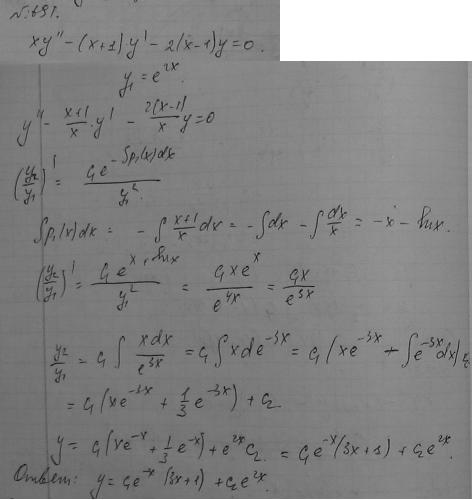 № 691.
xy'' - (x+1)·y' - 2(x-1)y = 0.
y₁ = e^{2x}
y'' - \frac{x+1}{x}·y' - \frac{2(x-1)}{x}y = 0
(\frac{y₂}{y₁})' = \frac{C₁e^{-∫p₁(x)dx}}{y₁²}
∫p₁(x)dx = -∫\frac{x+1}{x}dx = -∫dx - ∫\frac{dx}{x} = -x - ln x.
(\frac{y₂}{y₁})' = \frac{C₁e^{x+ln x}}{y₁²} = \frac{C₁xe^{x}}{e^{4x}} = \frac{C₁x}{e^{3x}}
\frac{y₂}{y₁} = C₁∫\frac{xdx}{e^{3x}} = C₁∫xde^{-3x} = C₁(xe^{-3x} + ∫e^{-3x}dx)C₂
= C₁(xe^{-3x} + \frac{1}{3}e^{-3x}) + C₂
y = C₁(xe^{-x} + \frac{1}{3}e^{-x}) + e^{2x}C₂ = C₁e^{-x}(3x+1) + C₂e^{2x}.
Ответ: y = C₁e^{-x}(3x+1) + C₂e^{2x}.